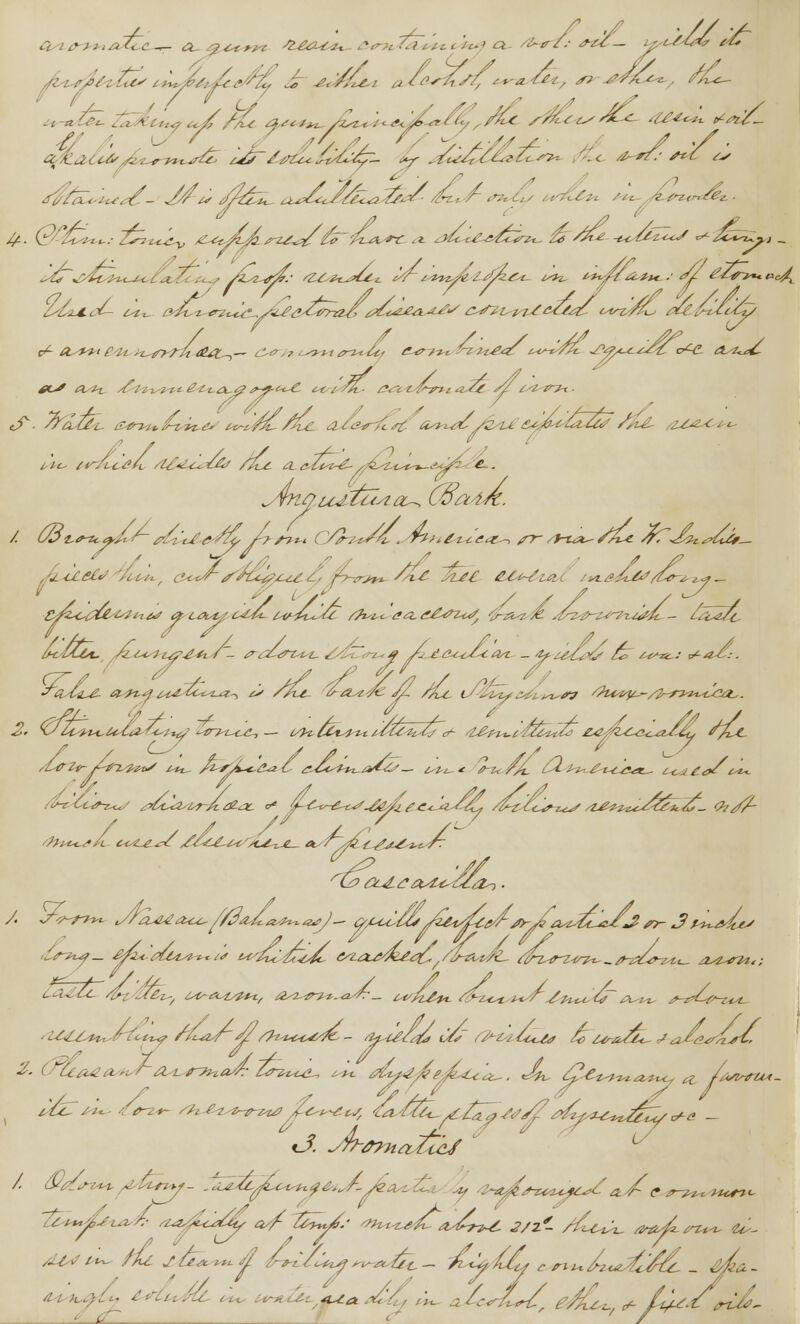 aromatic — a gum resin containing a vol: oil — yields its
properties imperfectly to either alcohol, water, or ether, the
water taking up the gum principally, the others the resin & oil —
alkalies promote its solubility — by distillation the vol: oil is
obtained — It is often adulterated but only when in powder.
4. Stim: tonic, supposed to have a direction to the uterus & lungs —
its stimulating prop: render it improper in inflam: of stomach
Used in chronic pectoral diseases connected with debility
& amennorrhœa, — commonly combined with squill &c and
as an emmenagogue with carbonate of iron.
5. Water combines with the alcohol and precipitates the resin
in which resides the active principle.
Angustura Bark.
1. Brought directly from South America or via the W. Indies —
pieces thin, cut obliquely from the tree several inches long —
epidermis grayish white micaceous, bark brownish — taste
bitter, pungent — odour strong peculiar — yields to wa: & al:.
False angustura, is the bark of the Strychnos nux-vomica.
2. Stimulating tonic, — intermittents & remittents especially the
low forms in tropical climates — in South America used in
bilious diarrhœa & fevers especially bilious remittents — not
much used elsewhere at present.
Cascarilla.
1. From Nassau (Bahamas) — quills perfect or partial 2 or 3 inches
long — epidermis whitish cracked, bark brown — odour arom:
taste bitter, warm, aromat — when burnt emits an odour
resembling that of musk — yields its virtues to water & alcohol.
2. Pleasant aromat: tonic, in dyspepsia. In Germany a favour-
ite in low nervous fevers, latter stages of dysentery &c —
3. Aromatics
1. Odour strong — taste pungent — partially vapourized at common
temperat: rapidly at temp: much above 212° — their vapour ri-
ses in the steam of boiling water — highly combustible — spa-
ringly soluble in water, readily in alcohol, ether, & fixed oils —